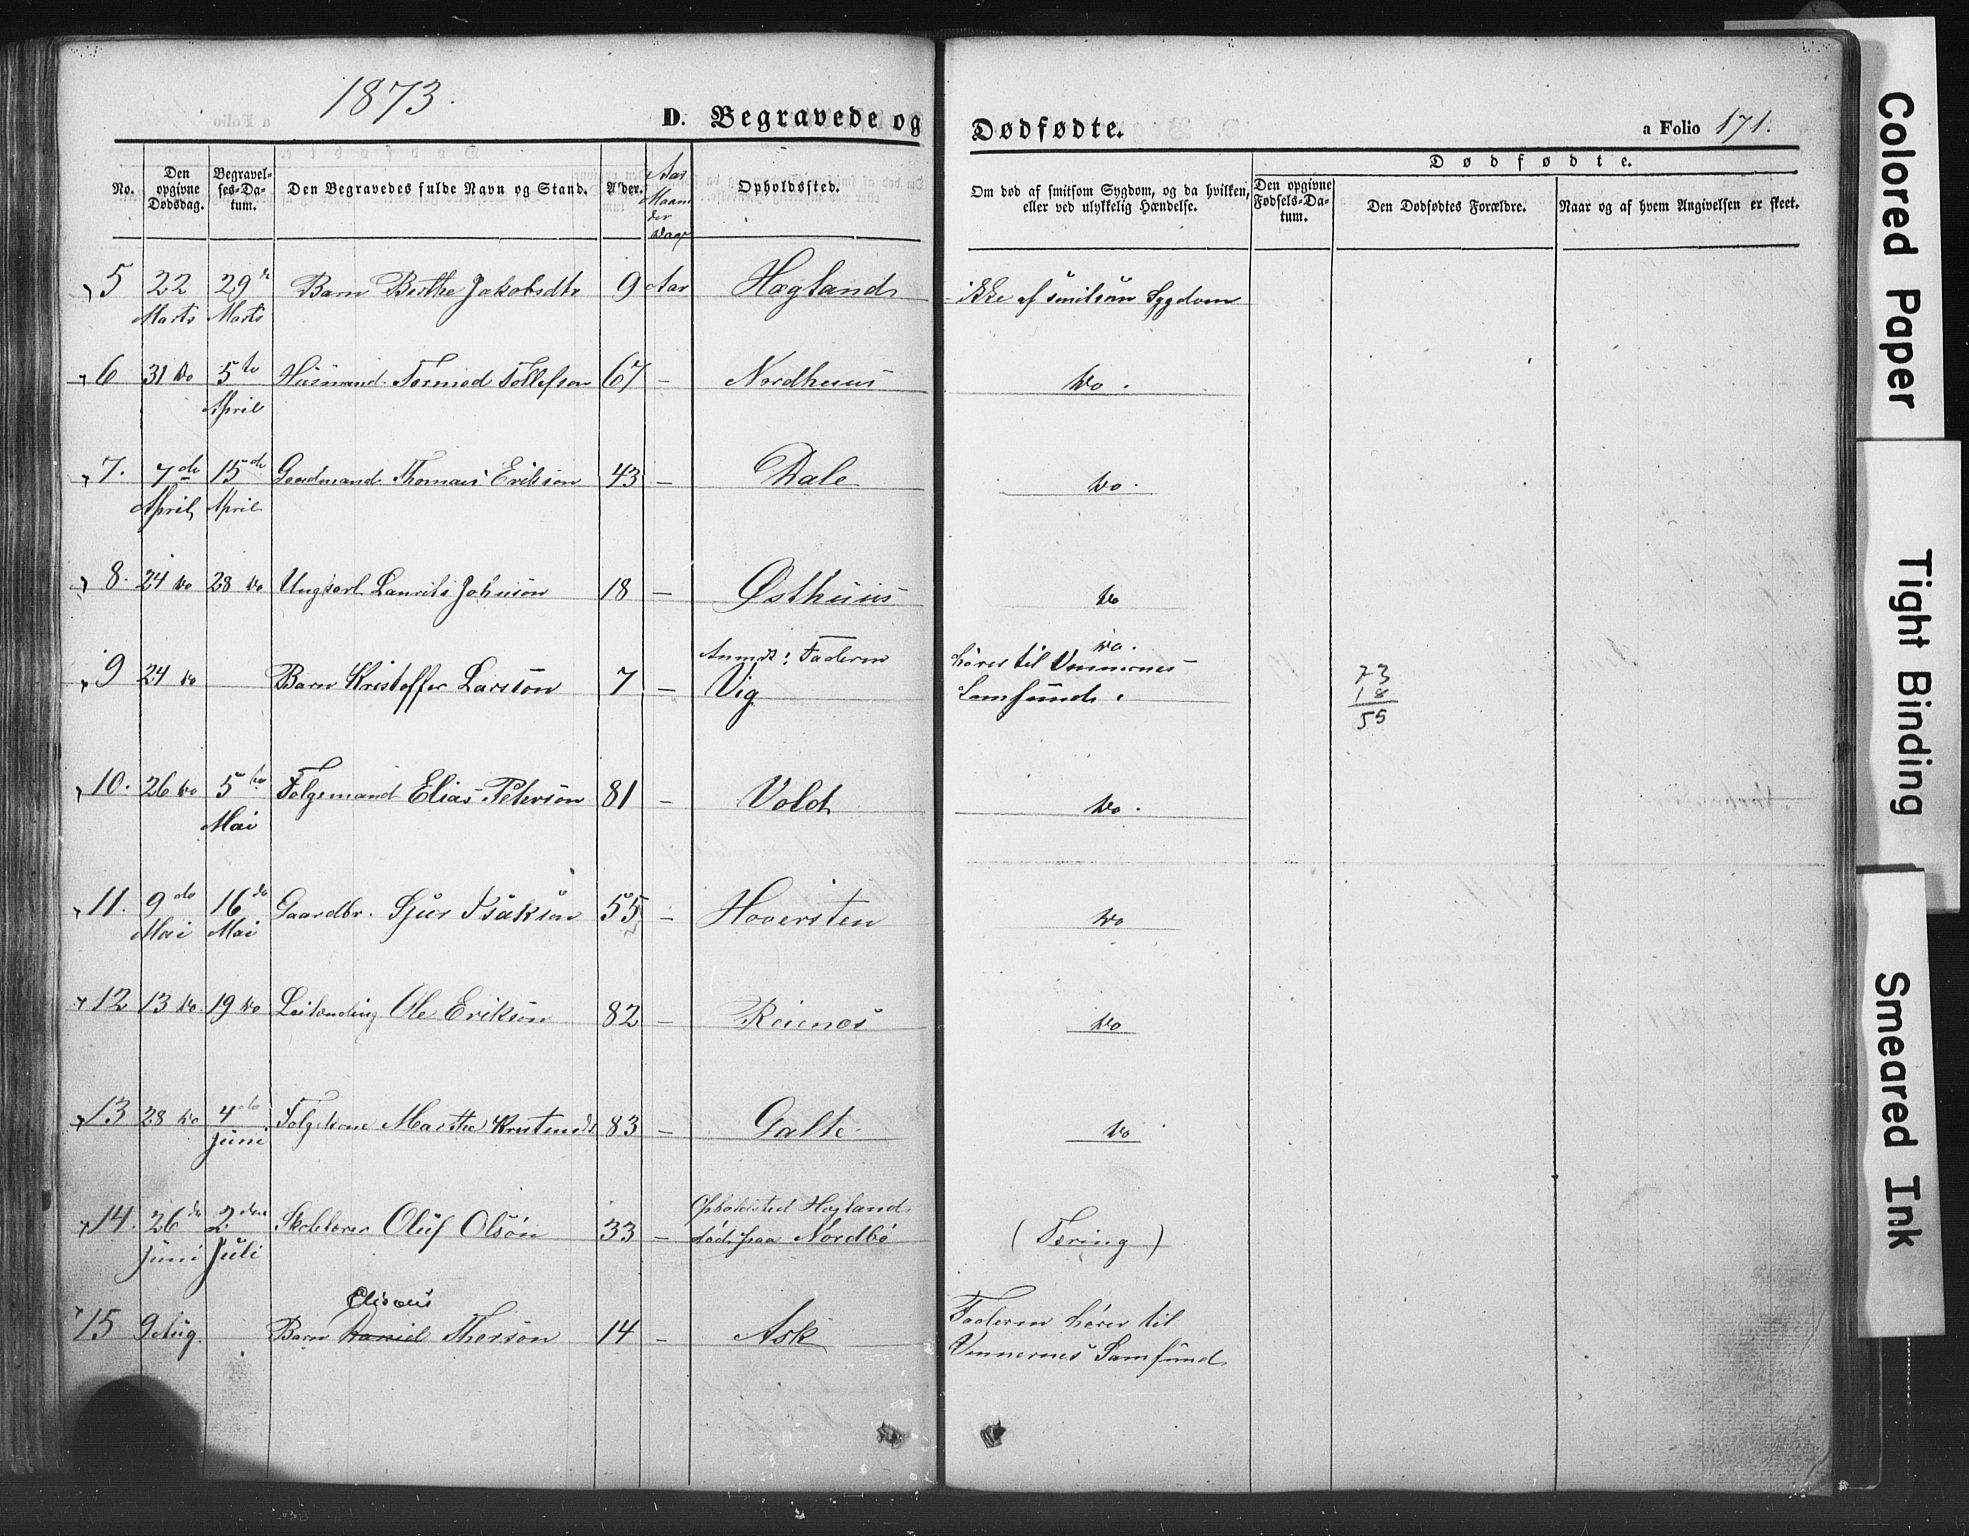 1873.
D. Begravede og
Dødfødte.
a Folio 171.
No.
Den opgivne Dødsdag.
Begravelses-Datum.
Den Begravedes fulde Navn og Stand.
Alder.
Aar Maaneder Dage
Opholdssted.
Om død af smitsom Sygdom, og da hvilken, eller ved ulykkelig Hændelse.
Dødfødte.
Den opgivne Fødsels-Datum.
Den Dødfødtes Forældre.
Naar og af hvem Angivelsen er skeet.
5 22 Marts 29 Marts Barn Berthe Jakobsdtr 9 Aar Høgland ikke af smitsom Sygdom
6 31 do 5te April Husmand Tormod Tollefsøn 67 — Nordhuus do.
7. 7de April 15de April Gaardmand Thomas Eriksøn 43 — Dale do.
8. 24 do 28 do Ungkarl Laurits Johnsøn 18 — Østhuus do
9 24 do Barn Kristoffer Larsøn 7 — Anmdt: Faderen Vig do. hører til Vennernes Samfund.
73
18
55
10. 26 do 5te Mai Følgemand Elias Petersøn 81 — Vold do.
11. 9de Mai 16de Mai Gaardbr. Sjur Isaksøn 55 — Hoversten do
12 13 do. 19 do Leilending Ole Eriksøn 82 — Reienes do
13 28 do 4de Juni Følgekone Marthe Knutsnd 83 — Galte do
14. 26de Juni 2den Juli Skolelærer Oluf Olsøn 33 — Opholdsted Høgland død paa Nordbø (Tæring)
15 9 Aug. Barn Daniel Elisæus Thorsøn 14 — Ask Faderen hører til Vennernes Samfund
Colored Paper
Tight Binding
Smeared Ink